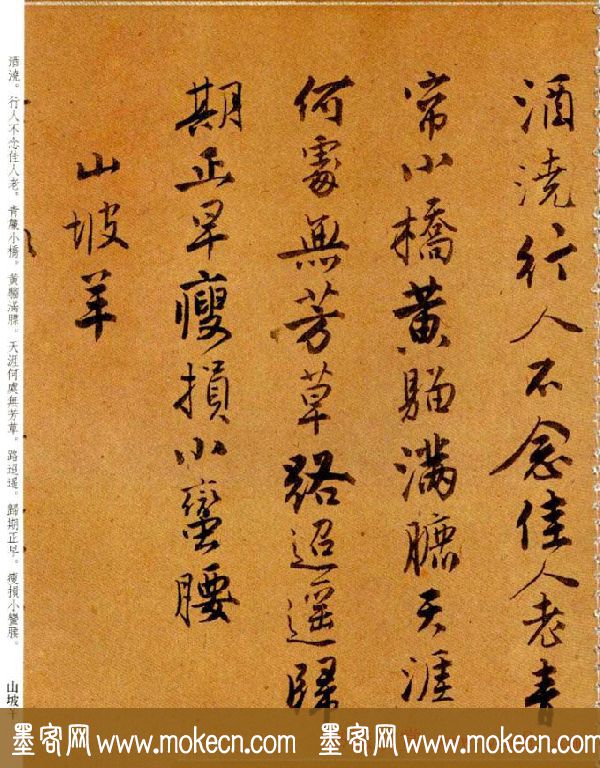 酒澆行人不念佳人老青
帘小橋黃騮滿臕天涯
何處無芳草路迢遙歸
期正早瘦損小蠻腰
山坡羊
酒澆。行人不念佳人老。青簾小橋。黃騮滿臕。天涯何處無芳草。路迢遙。歸期正早。瘦損小蠻腰。
山坡
墨客网 www.mokecn.com 墨客网 www.mokecn.com